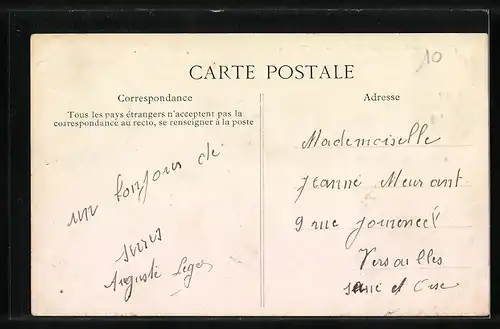 10
CARTE POSTALE
Correspondance
Tous les pays étrangers n'acceptent pas la
correspondance au recto, se renseigner à la poste
un bonjour de
Auguste Leger
Adresse
Mademoiselle
Jeanne Meurant
9 rue
Versailles
Seine et Oise